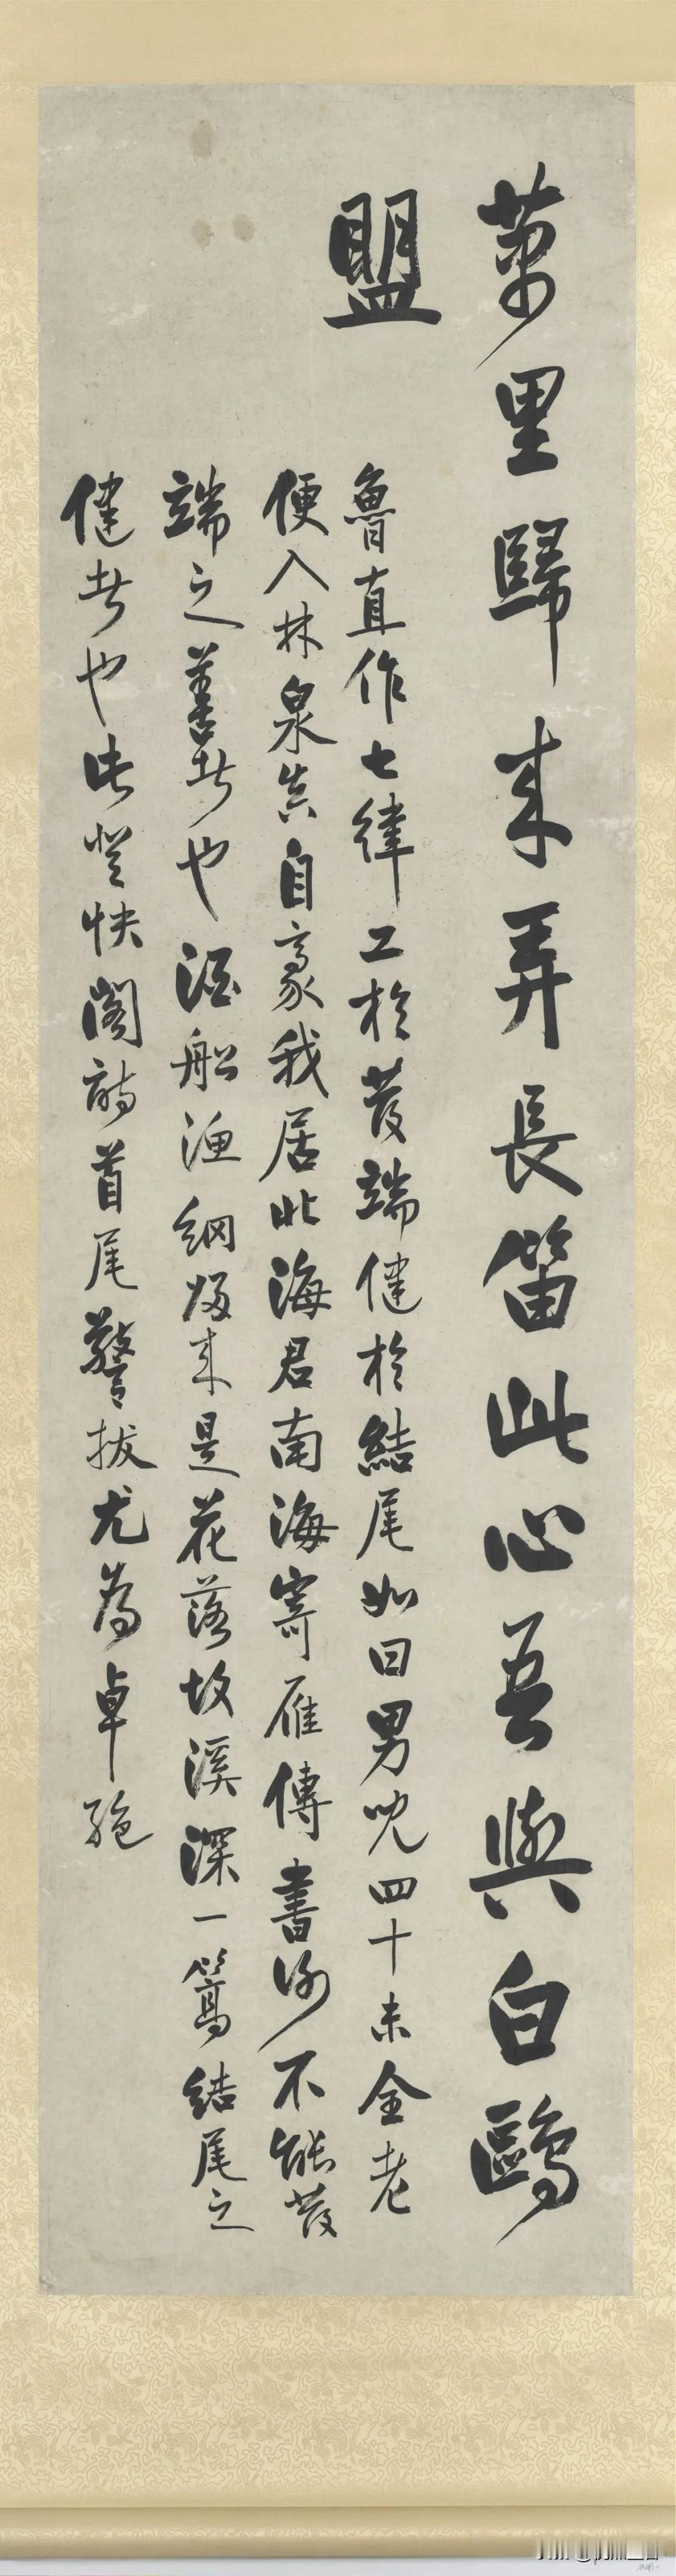 萬里歸來弄長笛此心吾與白鷗
盟
魯直作七律工於發端健於結尾如曰男兒四十未全老
便入林泉真自豪我居北海君南海寄雁傳書謝不能發
端之善者也酒船漁網歸來是花落故溪深一篙結尾之
健者也此登快閣詩首尾警拔尤為卓絕